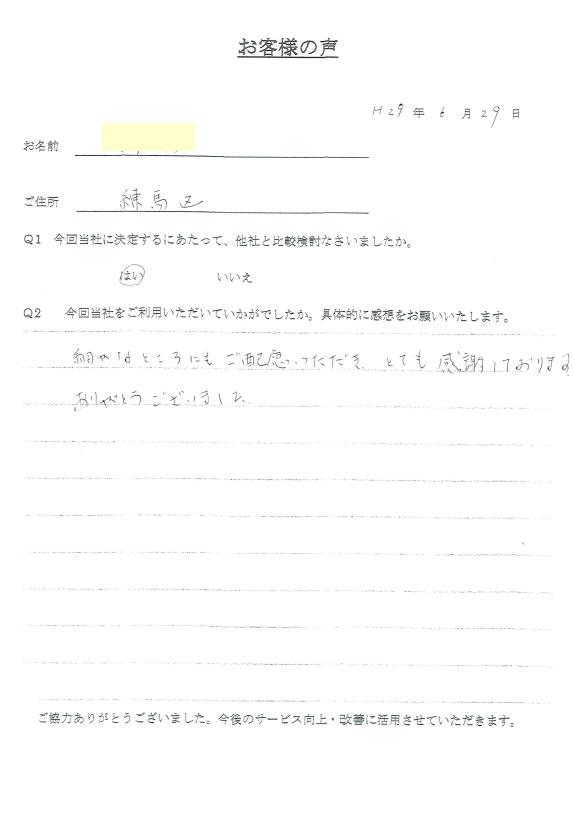 お客様の声
H29年 6月29日
お名前
ご住所 練馬区
Q1 今回当社に決定するにあたって、他社と比較検討なさいましたか。
はい いいえ
Q2 今回当社をご利用いただいていかがでしたか。具体的に感想をお願いいたします。
細やかなところにもご配慮いただき とても感謝しております
ありがとうございました
ご協力ありがとうございました。今後のサービス向上・改善に活用させていただきます。